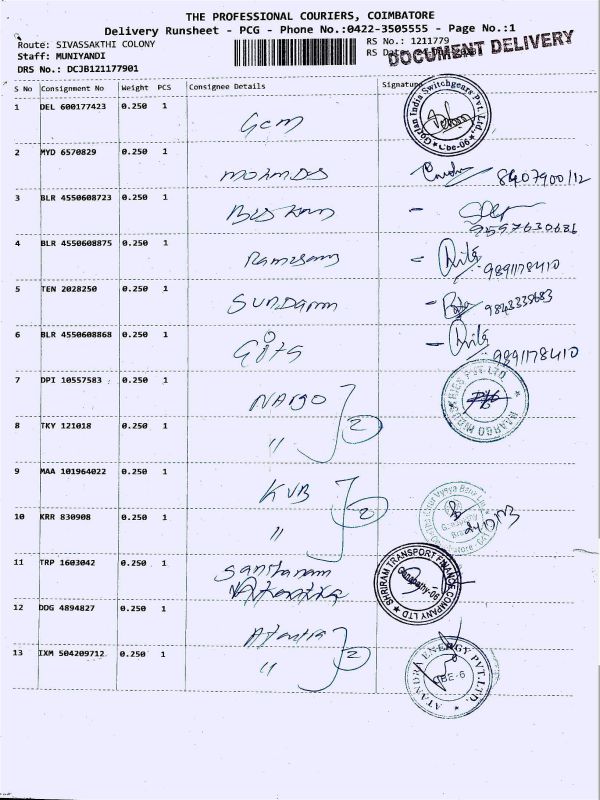 THE PROFESSIONAL COURIERS, COIMBATORE
Delivery Runsheet - PCG - Phone No.:0422-3505555 - Page No.:1
Route: SIVASSAKTHI COLONY
RS No.: 1211779
Staff: MUNIYANDI
RS Date:
DOCUMENT DELIVERY
DRS No.: DCJB121177901
S No Consignment No Weight PCS Consignee Details Signature
1 DEL 600177423 0.250 1 GCM
Switchgears Pvt. Ltd. Cbe-06
2 MYD 6570829 0.250 1
3 BLR 4550608723 0.250 1
9597630686
4 BLR 4550608875 0.250 1 - Rita
9891178410
5 TEN 2028250 0.250 1 SUNDARAM - 9843335683
6 BLR 4550608868 0.250 1 - Rita
9891178410
7 DPI 10557583 0.250 1 NARGO
2
8 TKY 121018 0.250 1 "
9 MAA 101964022 0.250 1 KVB
2
10 KRR 830908 0.250 1 "
11 TRP 1603042 0.250 1
SHRIRAM TRANSPORT FINANCE COMPANY LTD
Ganapathy-06
12 DDG 4894827 0.250 1
2
13 IXM 504209712 0.250 1 "
ATANDRA ENERGY PVT. LTD.
CBE-6